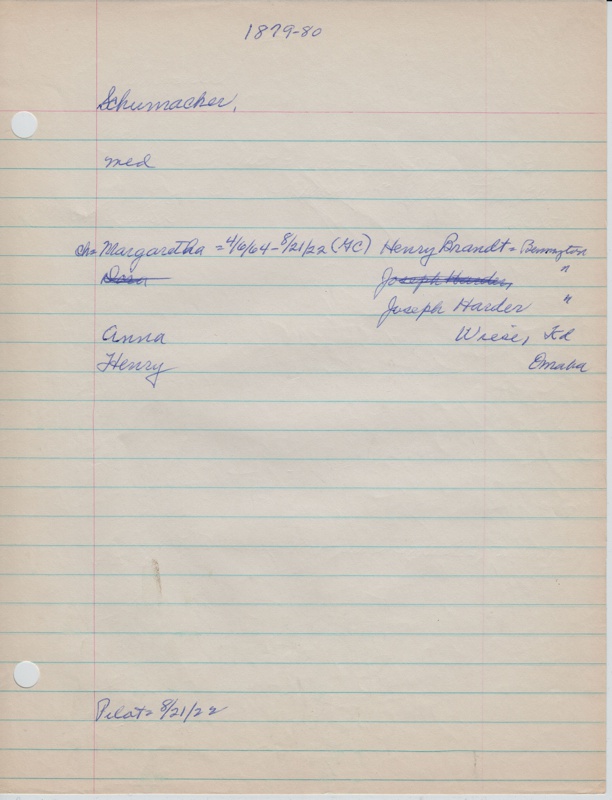 1879-80
Schumacher,
med
ch= Margaretha = 4/6/64 - 8/21/22 (GC) Henry Brandt = Bennington
Dora Joseph Harder, "
Joseph Harder "
Anna Wiese, Fd
Henry Omaha
Pilot = 8/21/22